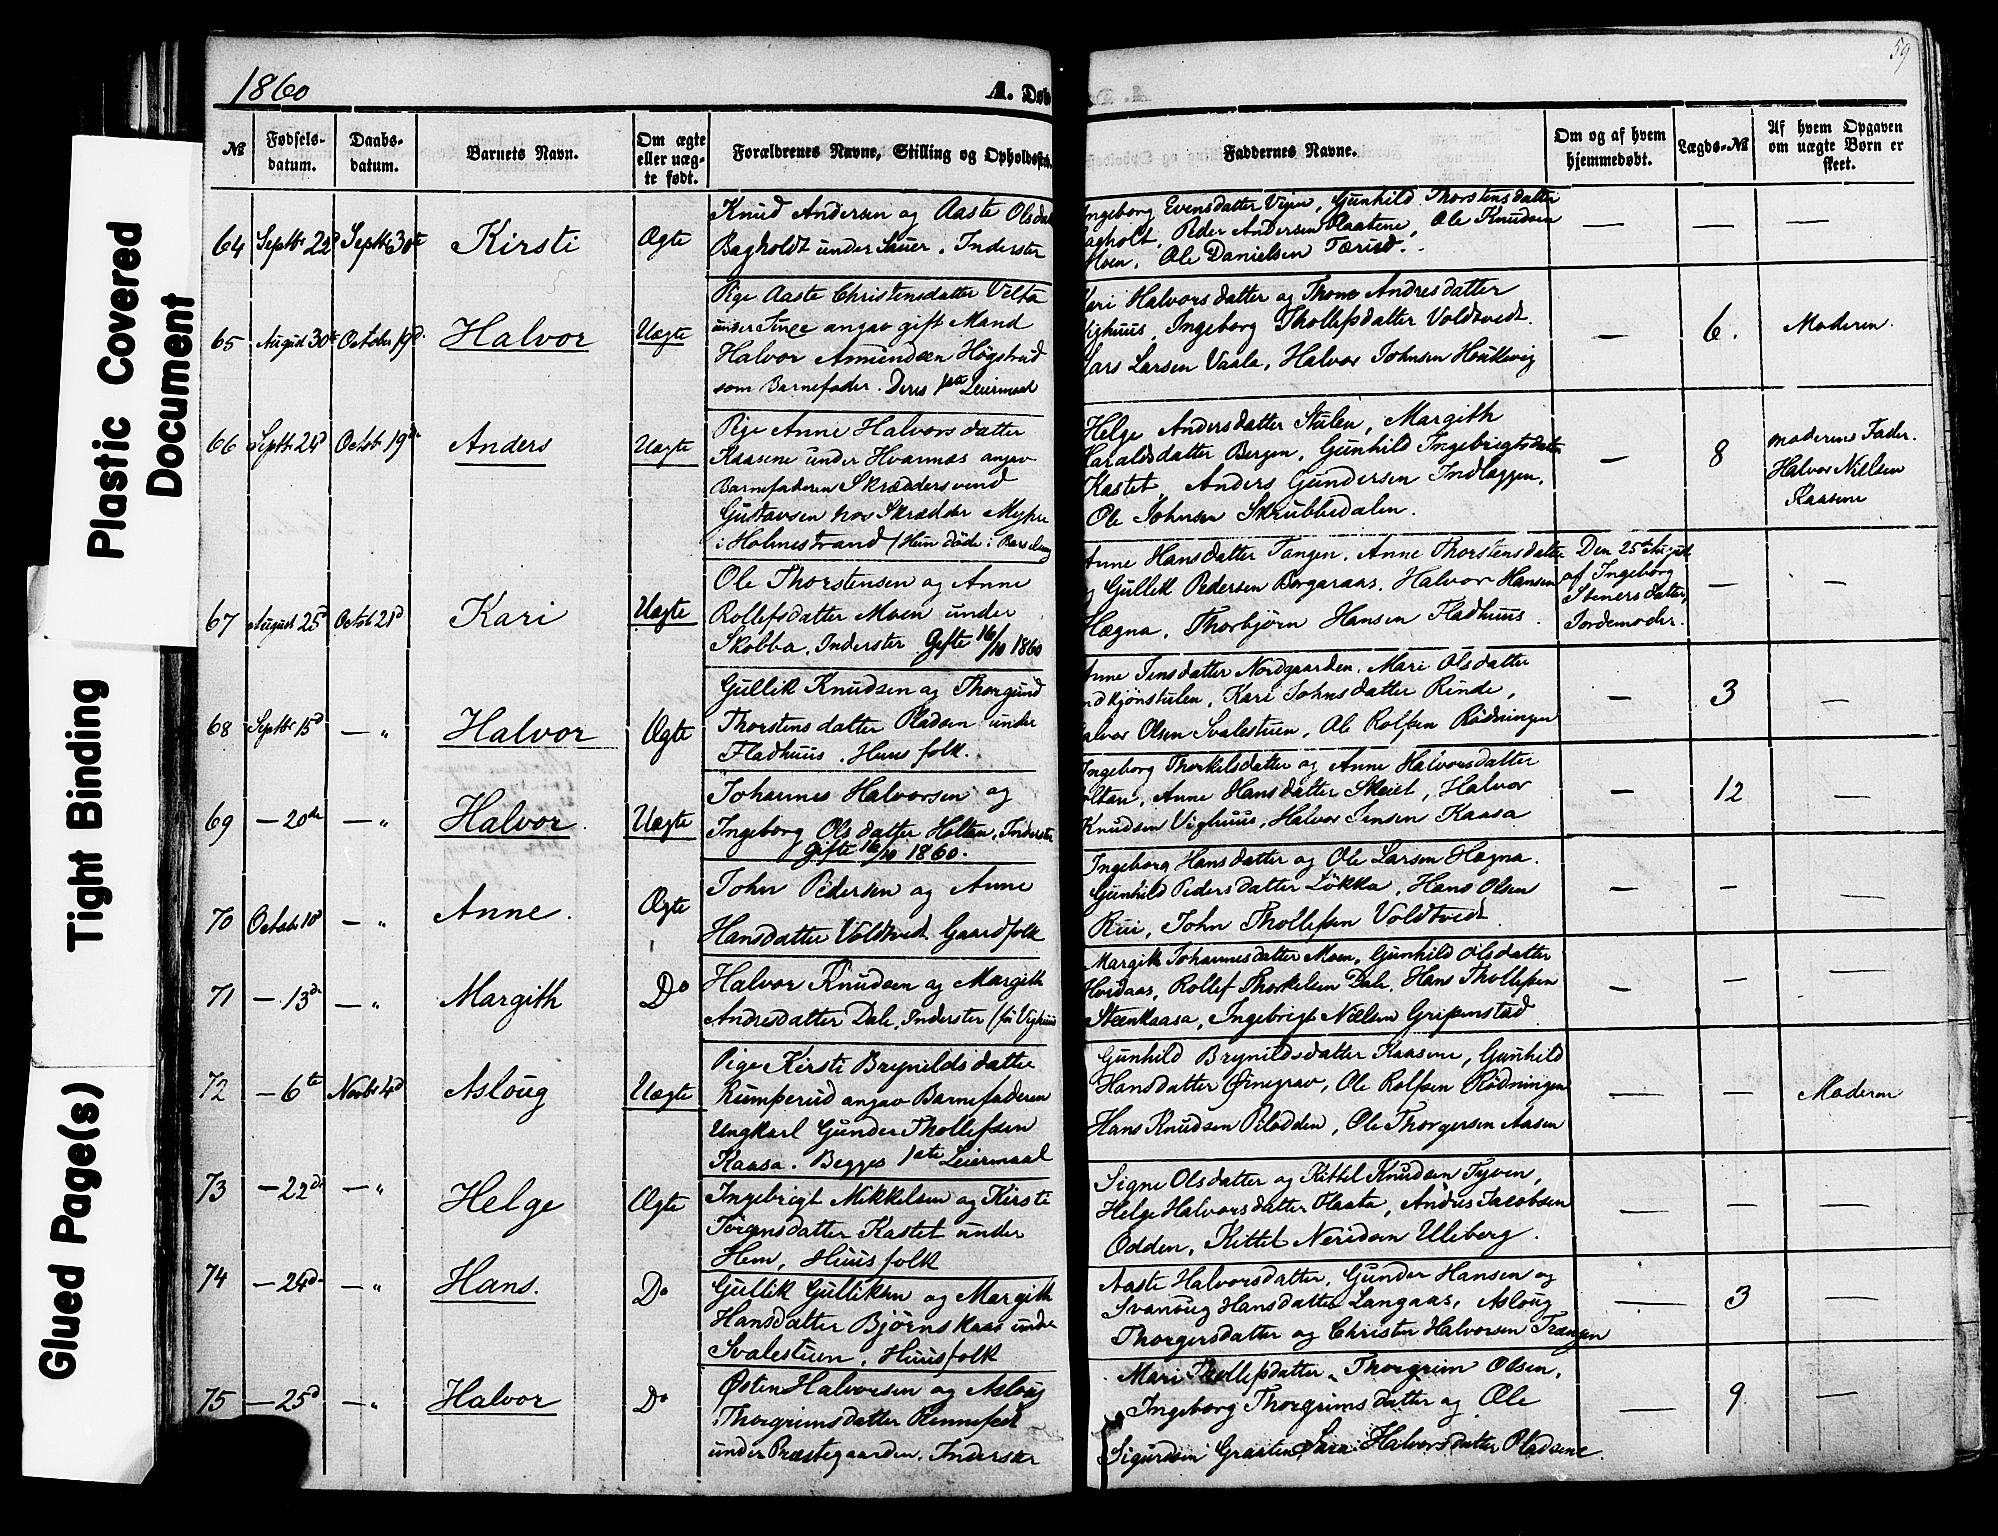 1860
A. Døb
59
№
Fødsels-
datum.
Daabs-
datum.
Barnets Navn.
Om ægte
eller uæg-
te født.
Forældrenes Navne, Stilling og Opholdsste
Faddernes Navne.
Om og af hvem
hjemmedøbt.
Lægds-№
Af hvem Opgaven
om uægte Børn er
skeet.
64 Septbr 22d Septbr 30te Kirsti Ægte
Knud Andersen og Aaste Olsdat
Bagholdt under Sauer. Inderster
Ingeborg Evensdatter Vejen, Gunhild Thorstensdatter
Bagholt, Peder Andersen Plaatene, Ole Knudsen
Moen, Ole Danielsen Tærud.
65 August 30te October 19d. Halvor Uægte
Pige Aaste Christensdatter Velta
under angav gift Mand
Halvor Amundsen Høgstrud
som Barnefader. Deres 1ste Leiermaal
Kari Halvorsdatter og Thone Andresdatter
Vighuus, Ingeborg Thollefsdatter Voldtvedt.
Lars Larsen Vaala, Halvor Johnsen
— 6. Moderen.
66 Septbr 24d Octob 19de Anders Uægte
Pige Anne Halvorsdatter
Kaasene under Hvarnæs angav
Barnefaderen Skræddersvend
Gustavsen hos Skrædder Myhre
i Holmestrand (Hun døde i Barselseng
Helge Andersdatter Stulen, Margith
Haraldsdatter Bergen, Gunhild Ingebrigtsdatter
Kastet Anders Gundersen Indlæggen,
Ole Johnsen Skrubbedalen.
— 8 moderens Fader.
Halvor Nielsen
Kaasene
67 August 25d Octob 21d Kari Uægte
Ole Thorstensen og Anne
Rollefsdatter Moen under
Skobba. Inderster Gifte 16/10 1860
Anne Hansdatter Tangen. Anne Thorstensdatter
og Gullik Pedersen Borgaraas. Halvor Hansen
Hægna, Thorbjørn Hansen Fladhuus.
Den 25te August
af Ingeborg
Stenersdatter,
Jordemoder.
68 Septbr 15d — „ Halvor Ægte
Gullik Knudsen og Thorgund
Thorstensdatter Pladsen under
Fladhuus. Huusfolk.
Anne Jensdatter Nordgaarden. Mari Olsdatter
Kari Johnsdatter Rinde,
Halvor Olsen Svalestuen, Ole Rolfsen Rødningen
— 3 —
69 — 20de — „ Halvor. Uægte
Johannes Halvorsen og
Ingeborg Olsdatter Holten. Inderster
Gifte 16/10 1860.
Ingeborg Thorkelsdatter og Anne Halvorsdatter
Holtan, Anne Hansdatter Skeiet, Halvor
Knudsen Vighuus, Halvor Jensen Kaasa
— 12 —
70 Octob. 10d — „ Anne. Ægte
John Pedersen og Anne
Hansdatter Voldtvedt Gaardfolk
Ingeborg Hansdatter og Ole Larsen Hægna.
Gunhild Pedersdatter Løkka, Hans Olsen
Rui, John Thollefsen Voldtvedt.
71 — 13de — „ Margith Do
Halvor Knudsen og Margith
Andresdatter Dale, Inderster (før Vighuus
Margith Johannesdatter Moen, Gunhild Olsdatter
Hvidaas, Rollef Thorkelsen Dale, Hans Thollefsen
Steenkaasa, Ingebrigt Nielsen Gripenstad
72 — 6te Novbr 4d Asloug Uægte
Pige Kirsti Brynildsdatter
Rumperud angav Barnefaderen
Ungkarl Gunder Thollefsen
Kaasa. Begges 1ste Leiermaal
Gunhild Brynildsdatter Kaasene, Gunhild
Hansdatter Øinegrav, Ole Rolfsen Rødningen
Hans Knudsen Plodden, Ole Thorgersen Aasen
— — Moderen
73 — 22de — „ Helge Ægte
Ingebrigt Mikkelsen og Kirsti
Jørgensdatter Kastet under
Hem, Huusfolk
Signe Olsdatter og Kittel Knudsen Tyven,
Helge Halvorsdatter Plaata, Andres Jacobsen
Odden, Kittel Neridsen Uleberg.
74 — 24d — „ Hans. Do
Gullik Gulliksen og Margith
Hansdatter Bjørnskaas under
Svalestuen, Huusfolk
Aaste Halvorsdatter, Gunder Hansen og
Svanoug Hansdatter Langaas, Asloug
Thorgersdatter og Christen Halvorsen Trængen
— 3 —
75 — 25d — „ Halvor Do
Østen Halvorsen og Asloug
Thorgrimsdatter Rennefelt
under Præstegaarden, Inderster
Mari Thollefsdatter, Thorgrim Olsen,
Ingeborg Thorgrimsdatter og Ole
Sigurdsen Graaten, Sara Halvorsdatter Pladsene.
— 9 —
Plastic Covered
Document
Tight Binding
Glued Page(s)